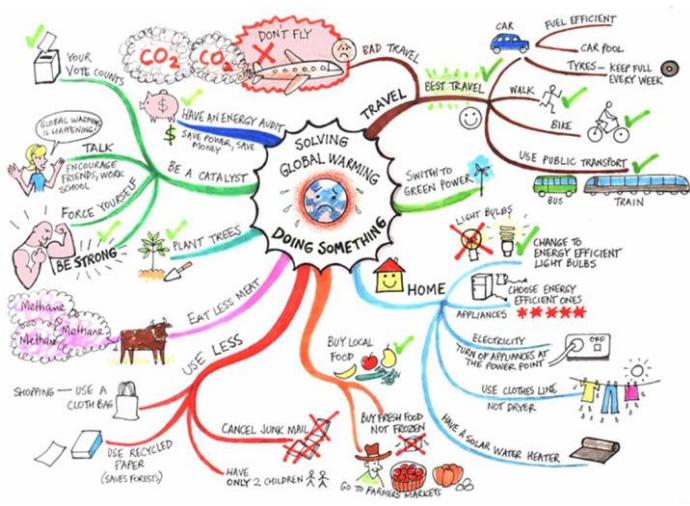 SOLVING
GLOBAL WARMING
DOING SOMETHING
TRAVEL
BAD TRAVEL
DON'T FLY
CO2
CO2
BEST TRAVEL
CAR
FUEL EFFICIENT
CAR POOL
TYRES – KEEP FULL
EVERY WEEK
WALK
BIKE
USE PUBLIC TRANSPORT
BUS
TRAIN
SWITH TO
GREEN POWER
HOME
LIGHT BULBS
CHANGE TO
ENERGY EFFICIENT
LIGHT BULBS
APPLIANCES
CHOOSE ENERGY
EFFICIENT ONES
ELECTRICITY
TURN OF APPLIANCES AT
THE POWER POINT
OFF
USE CLOTHES LINE
NOT DRYER
HAVE A SOLAR WATER HEATER
BUY LOCAL
FOOD
BUY FRESH FOOD
NOT FROZEN
GO TO FARMERS MARKETS
USE LESS
SHOPPING — USE A
CLOTH BAG
USE RECYCLED
PAPER
(SAVES FORESTS)
CANCEL JUNK MAIL
HAVE
ONLY 2 CHILDREN
EAT LESS MEAT
Methane
Methane
Methane
PLANT TREES
BE A CATALYST
YOUR
VOTE COUNTS
TALK
ENCOURAGE
FRIENDS, WORK
SCHOOL
GLOBAL WARMING
IS HAPPENING!
FORCE YOURSELF
BE STRONG
HAVE AN ENERGY AUDIT
SAVE POWER, SAVE
MONEY
$
$